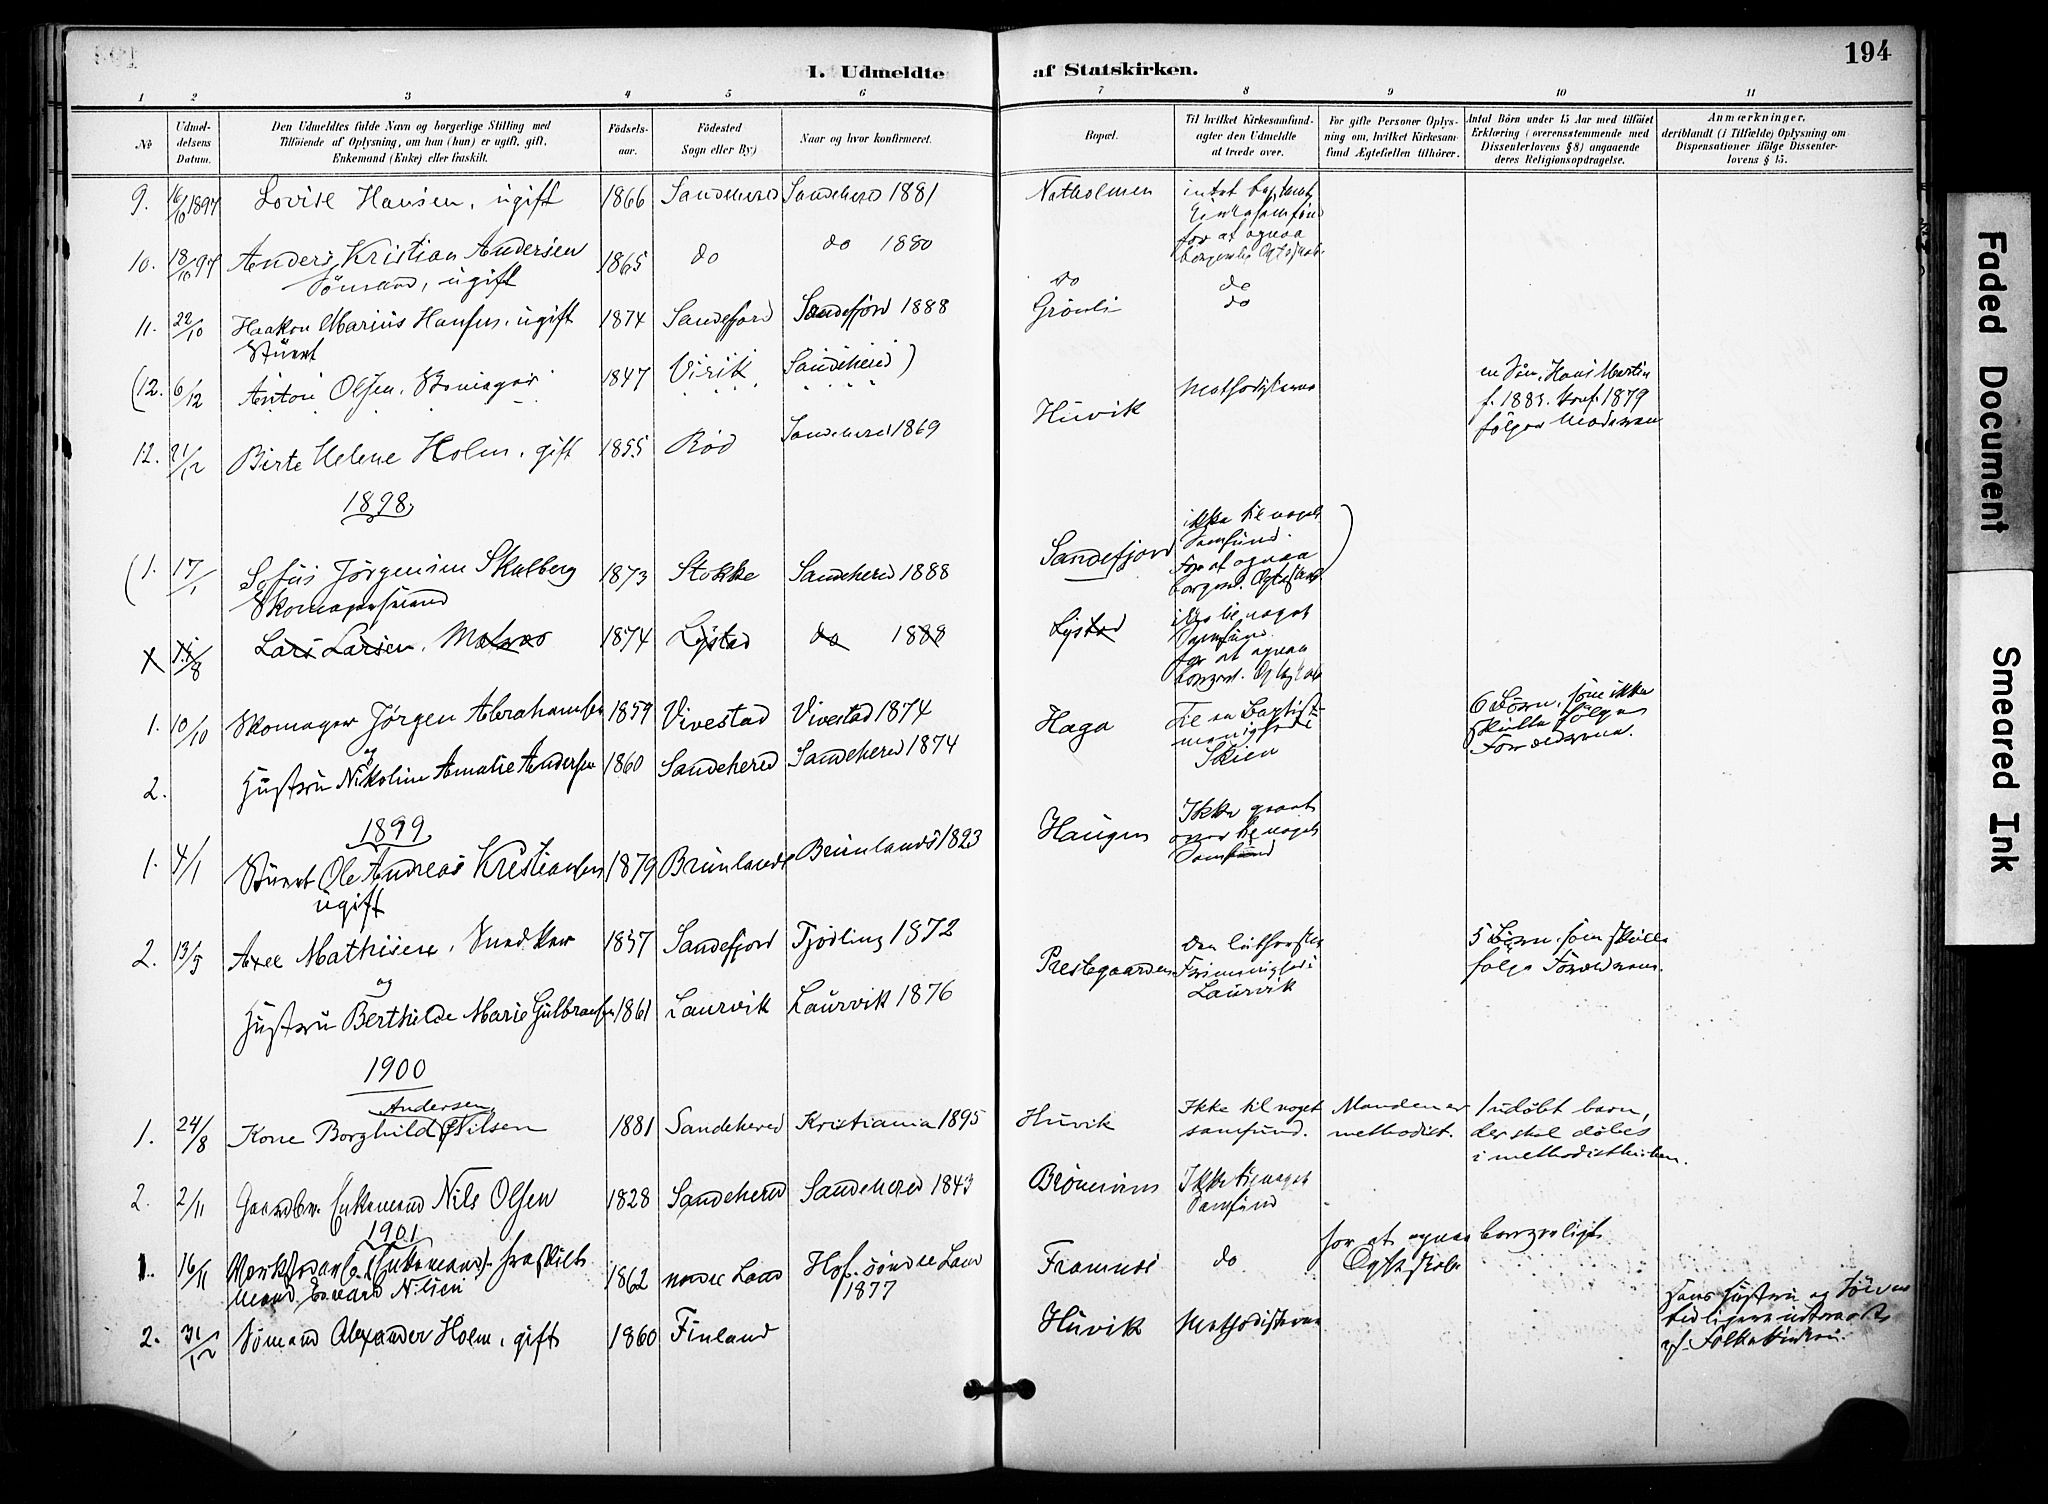 194
I. Udmeldte af Statskirken.
1 2 3 4 5 6 7 8 9 10 11
No
Udmel-
delsens
Datum.
Den Udmeldtes fulde Navn og borgerlige Stilling med
Tilføiende af Oplysning, om han (hun) er ugift, gift,
Enkemand (Enke) eller fraskilt.
Fødsels-
aar.
Fødested
Sogn eller By)
Naar og hvor konfirmeret.
Bopæl.
Til hvilket Kirkesamfund-
agter den Udmeldte
at træde over.
For gifte Personer Oplys-
ning om, hvilket Kirkesam-
fund Ægtefællen tilhører.
Antal Börn under 15 Aar med tilføiet
Erklæring (overensstemmende med
Dissenterlovens § 8) angaaende
deres Religionsopdragelse.
Anmærkninger,
deriblandt (i Tilfælde) Oplysning om
Dispensationer ifölge Dissenter-
lovens § 15.
9. 16/10 1897 Lovise Hansen, ugift 1866 Sandeherred Sandeherred 1881 Natholmen intet bestemt
for at opnaa
borgerlig Egteskab
10. 18/10 97 Anders Kristian Andersen 1865 do do 1880 do do
Sömand, ugift
11. 22/10 Haakon Marius Hansen, ugift 1874 Sandefjord Sandefjord 1888 Grönli do
Stuert
(12. 6/12 Anton Olsen, Skomager 1847 Virik Sandeherred) Huvik Methodisterne en Sön, Hans Martin
f. 1883.
følger Moderen
12. 21/12 Birte Helene Holm, gift 1855 Röd Sandeherred 1869
1898
(1. 17/1 Sofus Jørgensen Skalberg 1873 Stokke Sandeherred 1888 Sandefjord ikke til noget
Samfund.
For at opnaa
borgerl. Egteskab)
Skomagersvend
X Lars Larsen, Matros 1874 Lystad do 1888 Lystad ikke til noget
Samfund
for at opnaa
borgerl. Egteskab
1. 10/10 Skomager Jørgen Abrahamsen 1859 Vivestad Vivestad 1874 Haga Til en Baptist-
menighed i
Skien 6 Børn, som ikke
skulle følge
Forældrene.
og
2. Hustru Nikoline Amalie Andersen 1860 Sandeherred Sandeherred 1874
1899
1. 4/1 Stuert Ole Andreas Kristiansen 1879 Brunlanes Brunlanes 1893 Haugen Ikke gaaet
over til noget
Samfund
ugift
2. 13/5 Axel Mathisen, Snedker 1857 Sandefjord Tjødling 1872 Prestegaarden Den lutherske
Frimenighed i
Laurvik 5 Børn, som skulle
følge Forældrene.
og
Hustru Berthilde Marie Gulbransen 1861 Laurvik Laurvik 1876
1900
Andersen
1. 24/8 Kone Borghild Nilsen 1881 Sandeherred Kristiania 1895 Huvik Ikke til noget
samfund. Manden er
methodist. 1 udöbt barn,
der skal døbes
i methodistkirken.
2. 2/11 Gaardbr. Enkemand Nils Olsen 1828 Sandeherred Sandeherred 1843 Ikke til noget
Samfund
1901
1. 16/11 (Enkemand) fraskilt 1862 nordre Land Hof søndre Land
1877 Framnes do for at opnaa borgerligt
Egteskab
Mand Edvard Nilsen
2. 31/12 Sømand Alexander Holm, gift 1860 Finland Huvik Methodisterne Hans Hustru og Börn
tidligere udtraadt
af Folkekirken.
Faded Document
Smeared Ink